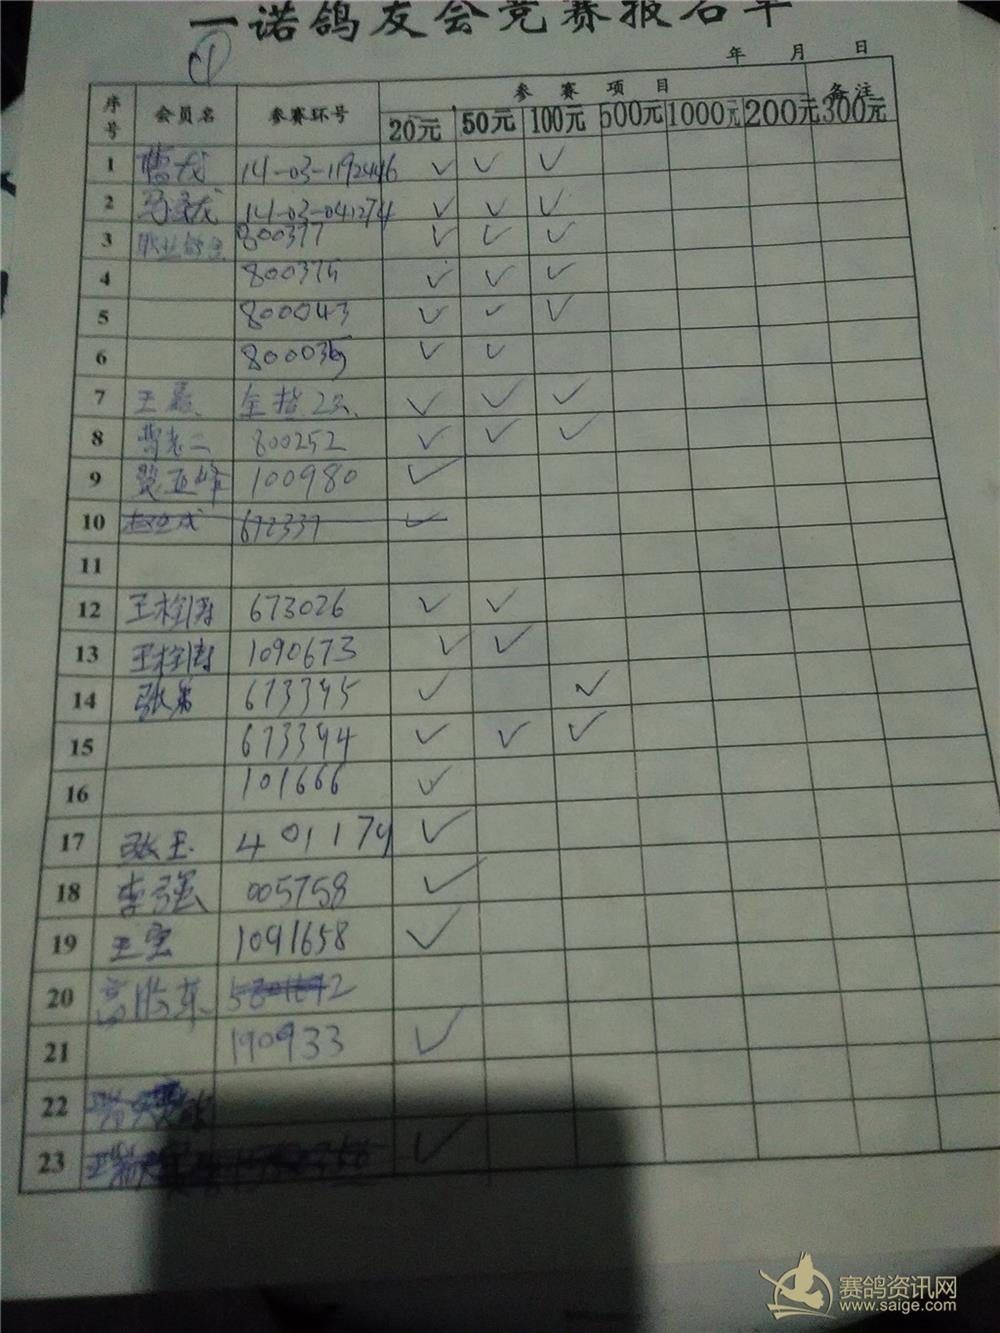 一诺鸽友会竞赛报名单
①
年 月 日
序号 会员名 参赛环号 参赛项目 备注
20元 50元 100元 500元 1000元 200元 300元
1 曹戈 14-03-1192446 ✓ ✓ ✓
2 14-03-041274 ✓ ✓ ✓
3 800377 ✓ ✓ ✓
4 800375 ✓ ✓ ✓
5 800043 ✓ ✓ ✓
6 800035 ✓ ✓
7 王磊 全指2羽 ✓ ✓ ✓
8 曹老二 800252 ✓ ✓ ✓
9 樊亚峰 100980 ✓
10 672337 ✓
11
12 王栓涛 673026 ✓ ✓
13 王栓涛 1090673 ✓ ✓
14 张弟 673395 ✓ ✓
15 673394 ✓ ✓ ✓
16 101666 ✓
17 张玉 401179 ✓
18 李强 005758 ✓
19 王宝 1091658 ✓
20
21 190933 ✓
22
23 ✓
赛鸽资讯网
www.saige.com